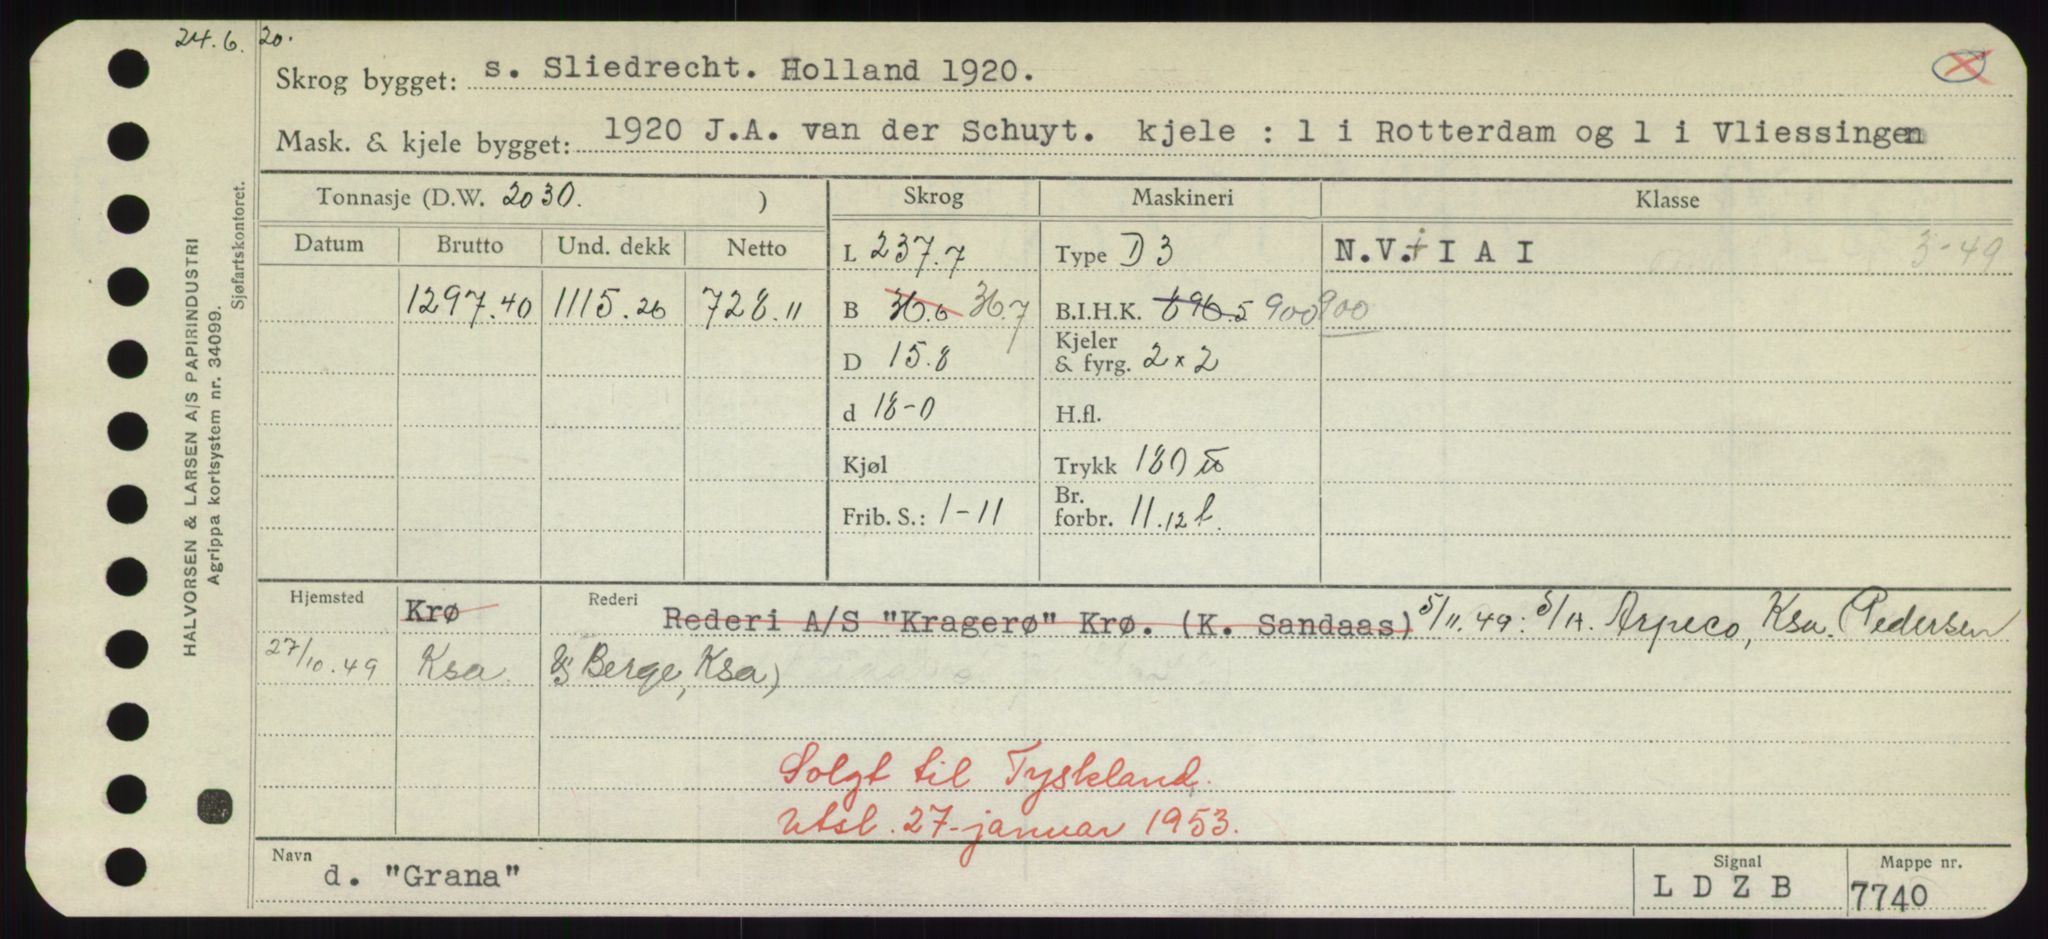 24.6.20.
Skrog bygget: s. Sliedrecht. Holland 1920.
Mask. & kjele bygget: 1920 J.A. van der Schuyt. kjele : 1 i Rotterdam og 1 i Vliessingen
Tonnasje (D.W. 2030. ) Skrog Maskineri Klasse
Datum Brutto Und. dekk Netto L 237.7 Type D 3 N.V. + I A I 3-49
1297.40 1115.26 728.11 B 36.6 36.7 B.I.H.K. 696.5 900 900
D 15.8 Kjeler & fyrg. 2 x 2
d 18-0 H.fl.
Kjøl Trykk 180 lb
Frib. S.: 1-11 Br. forbr. 11.12 t.
Hjemsted Krø Rederi Rederi A/S "Kragerø" Krø. (K. Sandaas) 5/11.49: S/A. Arpeco, Ksa. (Pedersen
27/10.49 Ksa. & Berge, Ksa)
Solgt til Tyskland.
Utsl. 27. januar 1953.
Navn d. "Grana" Signal L D Z B Mappe nr. 7740
HALVORSEN & LARSEN A/S PAPIRINDUSTRI
Agrippa kortsystem nr. 34099.
Sjøfartskontoret.